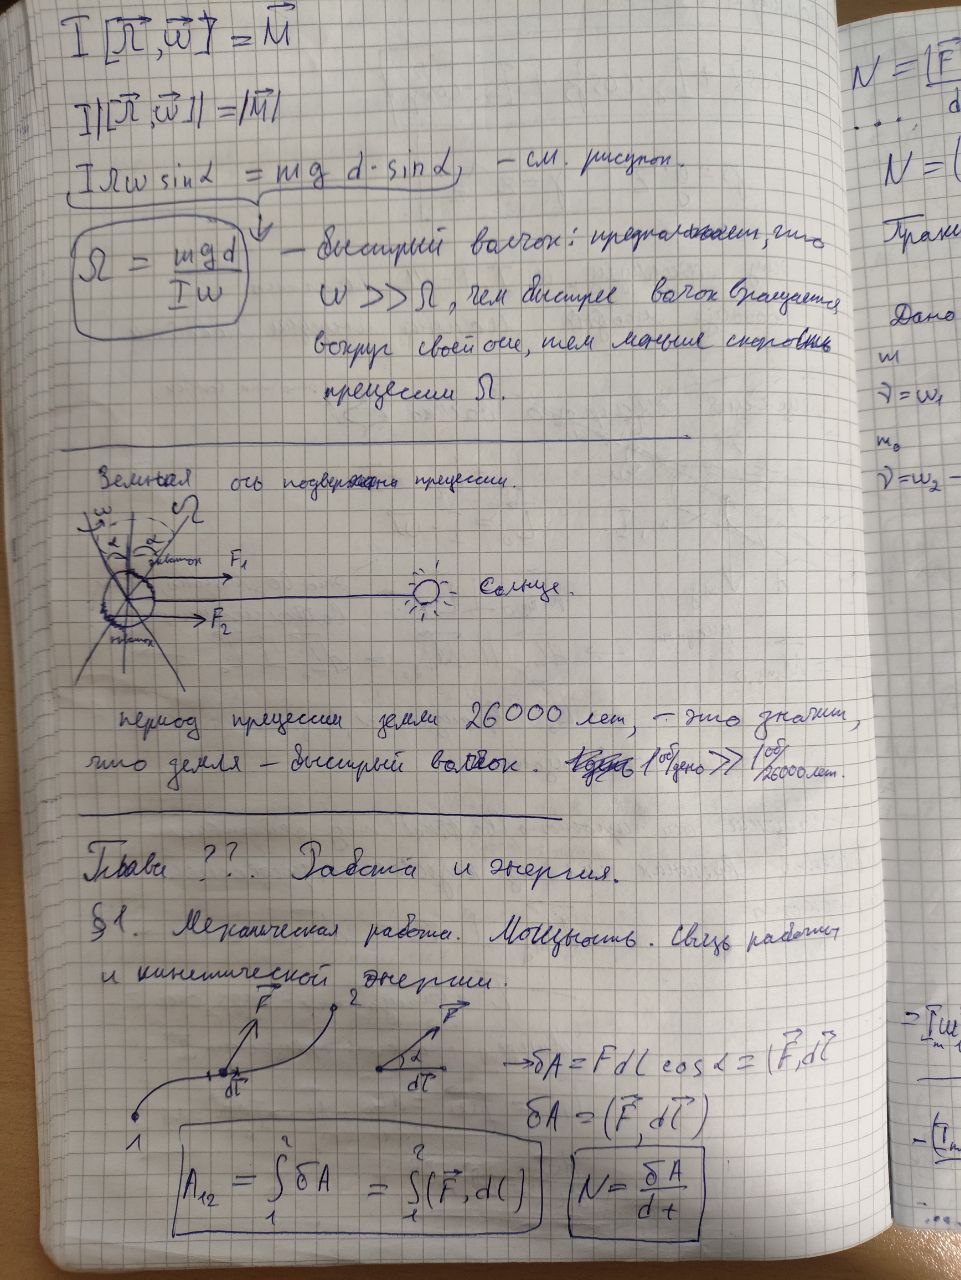 I [Ω⃗, ω⃗] = M⃗
I |[Ω⃗, ω⃗]| = |M⃗|
IΩω sinα = mg d · sinα, – см. рисунок.
Ω = mgd / Iω – быстрый волчок: предполагает, что
ω >> Ω, чем быстрее волчок вращается
вокруг своей оси, тем меньше скорость
прецессии Ω.
Земная ось подвержена прецессии.
ω Ω
α α
F₁
Солнце.
F₂
период прецессии земли 26000 лет, – это значит,
что земля – быстрый волчок. 1 об/день >> 1 об/26000 лет.
Глава ??. Работа и энергия.
§1. Механическая работа. Мощность. Связь работы
и кинетической энергии.
F⃗ 2 F⃗
α
dl⃗ dl⃗
1
→ δA = Fdl cosα = (F⃗, dl⃗
δA = (F⃗, dl⃗)
A₁₂ = ∫₁² δA = ∫₁² (F⃗, dl) N = δA / dt
N = (F⃗
d
...
N = (
Дано
m
ν = ω₁
m₀
ν = ω₂ –